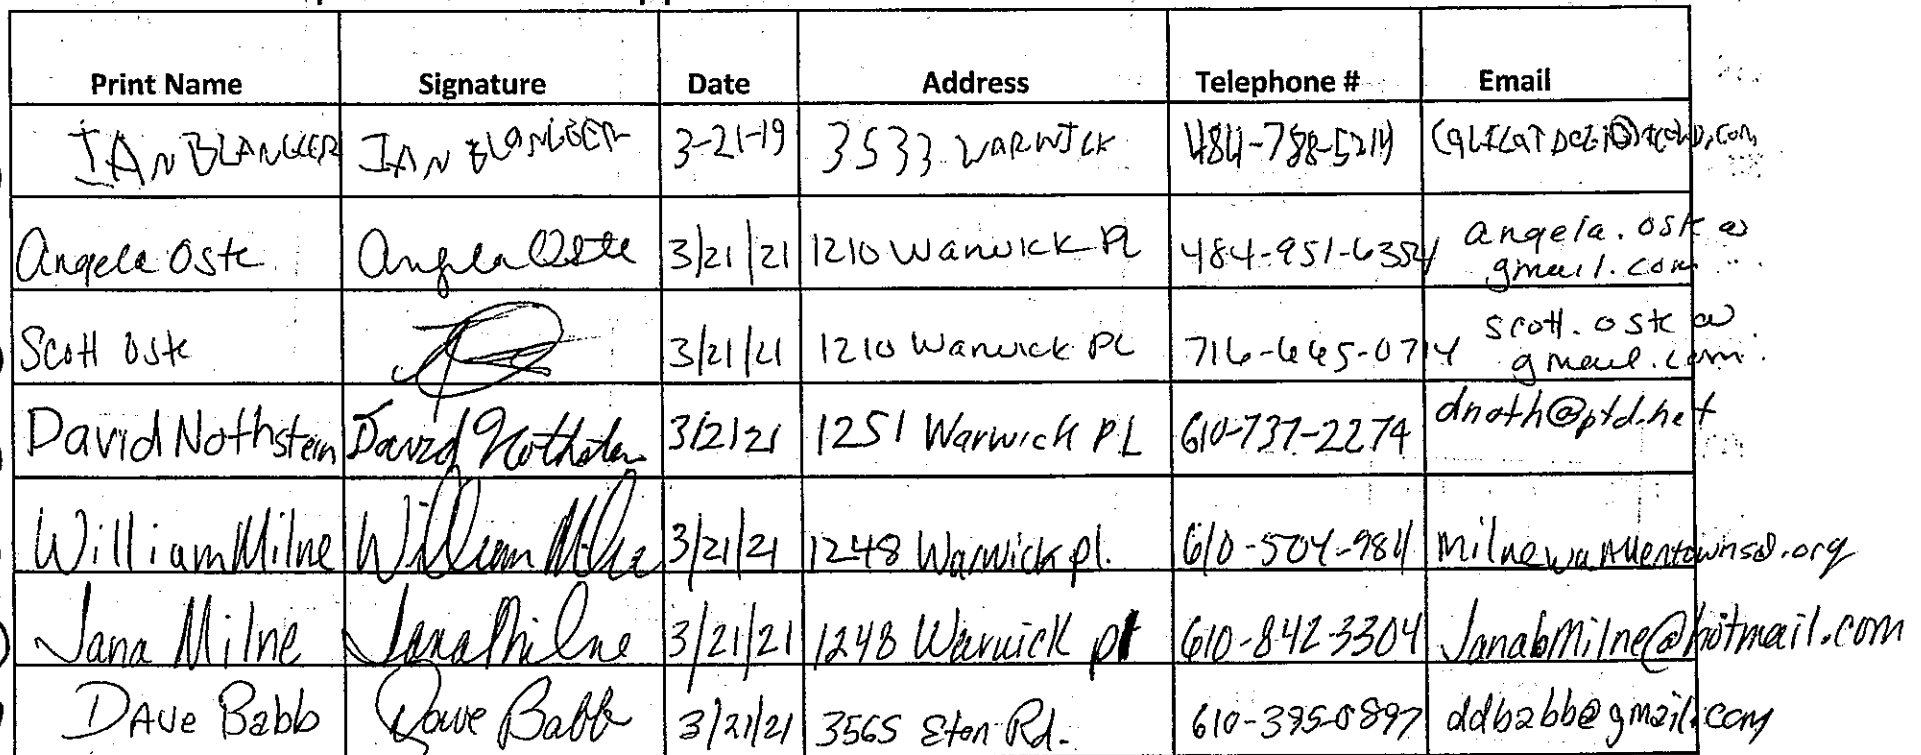 Print Name Signature Date Address Telephone # Email
IAN BLANGGER IAN BLANGGER 3-21-19 3533 WARWICK 484-788-5214
Angela Oste Angela Oste 3/21/21 1210 Warwick PL 484-951-6354 angela.oste@
gmail.com
Scott Oste 3/21/21 1210 Warwick PL 716-665-0714 scott.oste@
gmail.com
David Nothstein David Nothstein 3/21/21 1251 Warwick PL 610-737-2274 dnoth@ptd.net
William Milne William Milne 3/21/21 1248 Warwick pl. 610-504-9811
Jana Milne Jana Milne 3/21/21 1248 Warwick pl 610-842-3304 JanabMilne@hotmail.com
DAve Babb Dave Babb 3/21/21 3565 Eton Rd. 610-395-0897 ddbabb@gmail.com